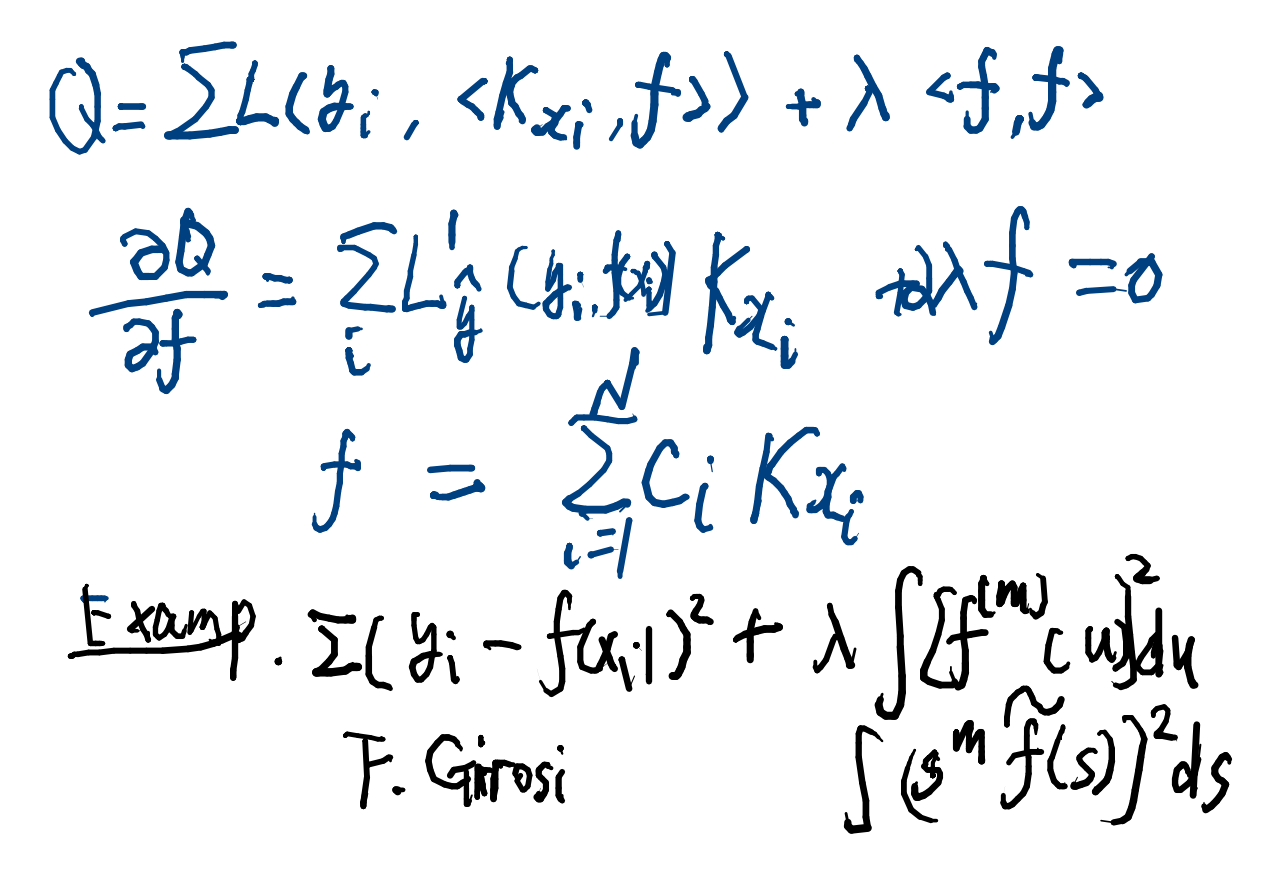 Q = ΣL(y_i, <K_{x_i}, f>) + λ <f, f>
∂Q/∂f = Σ_i L'_ŷ (y_i, f(x_i)) K_{x_i} + 2λf = 0
f = Σ_{i=1}^N C_i K_{x_i}
Examp. Σ(y_i - f(x_i))^2 + λ ∫[f^{(m)}(u)]^2 du
F. Girosi ∫(s^m f̃(s))^2 ds